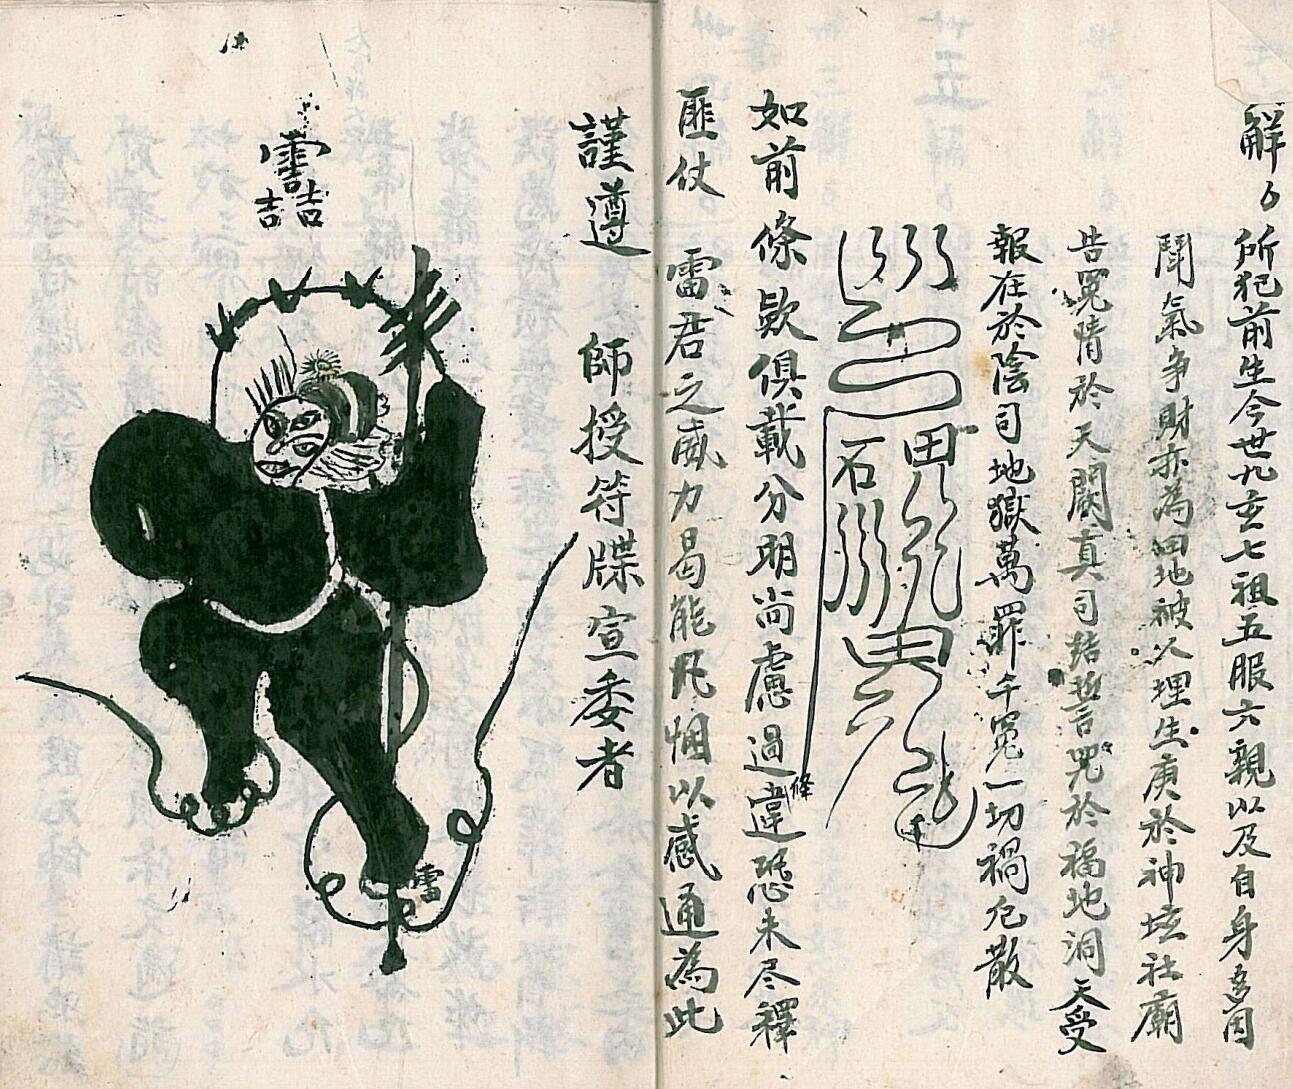 解〻所犯前生今世九玄七祖五服六親以及自身多因
鬪氣爭財亦為田地被人埋生庚於神坛社廟
告冤情於天闕真司結誓言咒於福地洞天受
報在於陰司地獄萬罪千冤一切禍厄散
田
石
如前條欵俱載分明尚慮過違條恐未尽釋
匪仗 雷君之威力曷能凡悃以感通為此
謹遵 師授符牒宣委者
雷
吉吉
雷